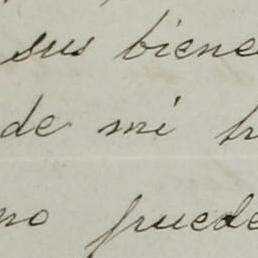 sus biene
de mi h
no puede